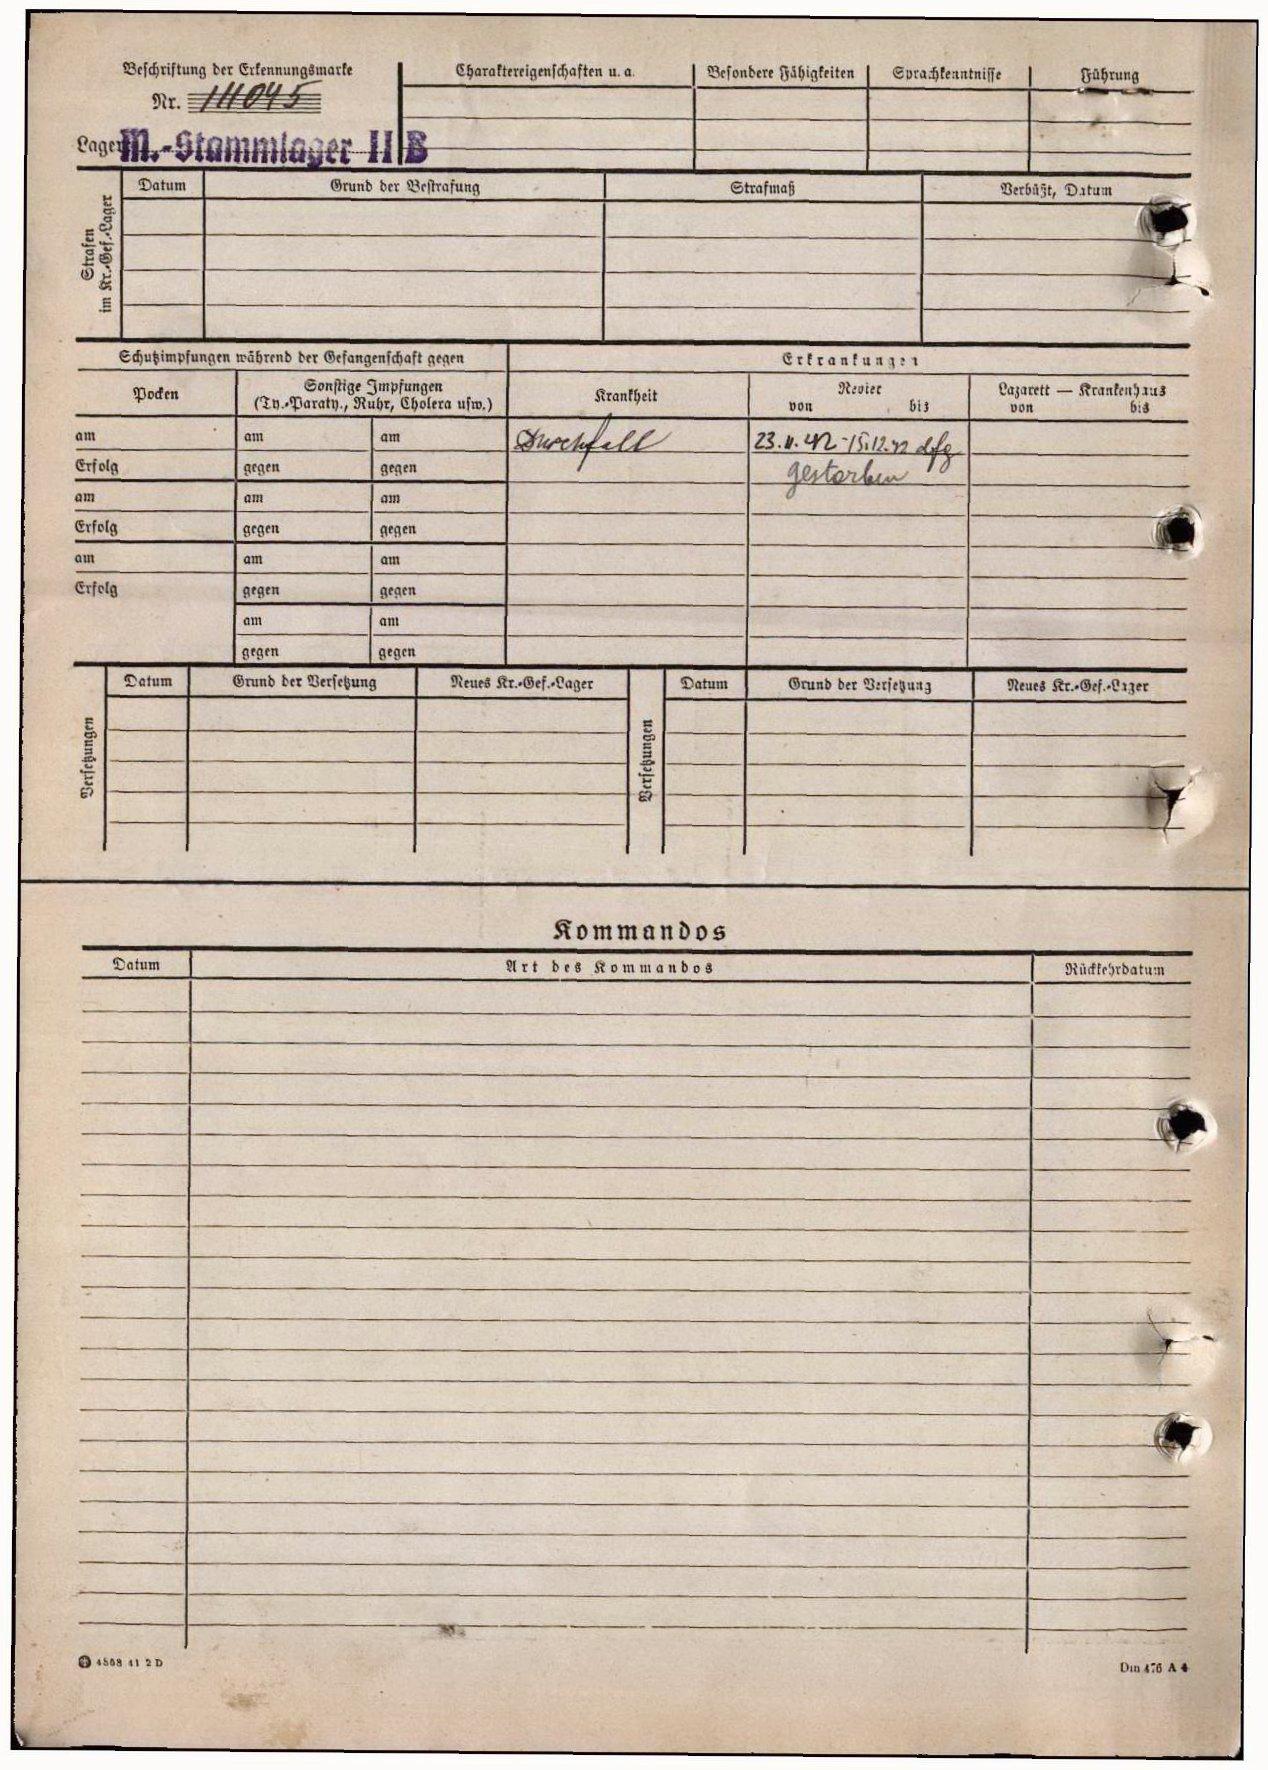 Beschriftung der Erkennungsmarke
Nr. 111045
Lager M.-Stammlager II B
Charaktereigenschaften u. a.
Besondere Fähigkeiten
Sprachkenntnisse
Führung
Strafen im Kr.-Gef.-Lager
Datum
Grund der Bestrafung
Strafmaß
Verbüßt, Datum
Schutzimpfungen während der Gefangenschaft gegen
Erkrankungen
Pocken
Sonstige Impfungen
(Ty.-Paraty., Ruhr, Cholera usw.)
Krankheit
Revier
von bis
Lazarett — Krankenhaus
von bis
am am am Durchfall 23.11.42-15.12.42
Erfolg gegen gegen gestorben
am am am
Erfolg gegen gegen
am am am
Erfolg gegen gegen
am am
gegen gegen
Versetzungen
Datum
Grund der Versetzung
Neues Kr.-Gef.-Lager
Versetzungen
Datum
Grund der Versetzung
Neues Kr.-Gef.-Lager
Kommandos
Datum
Art des Kommandos
Rückkehrdatum
4568 41 2 D
Din 476 A 4